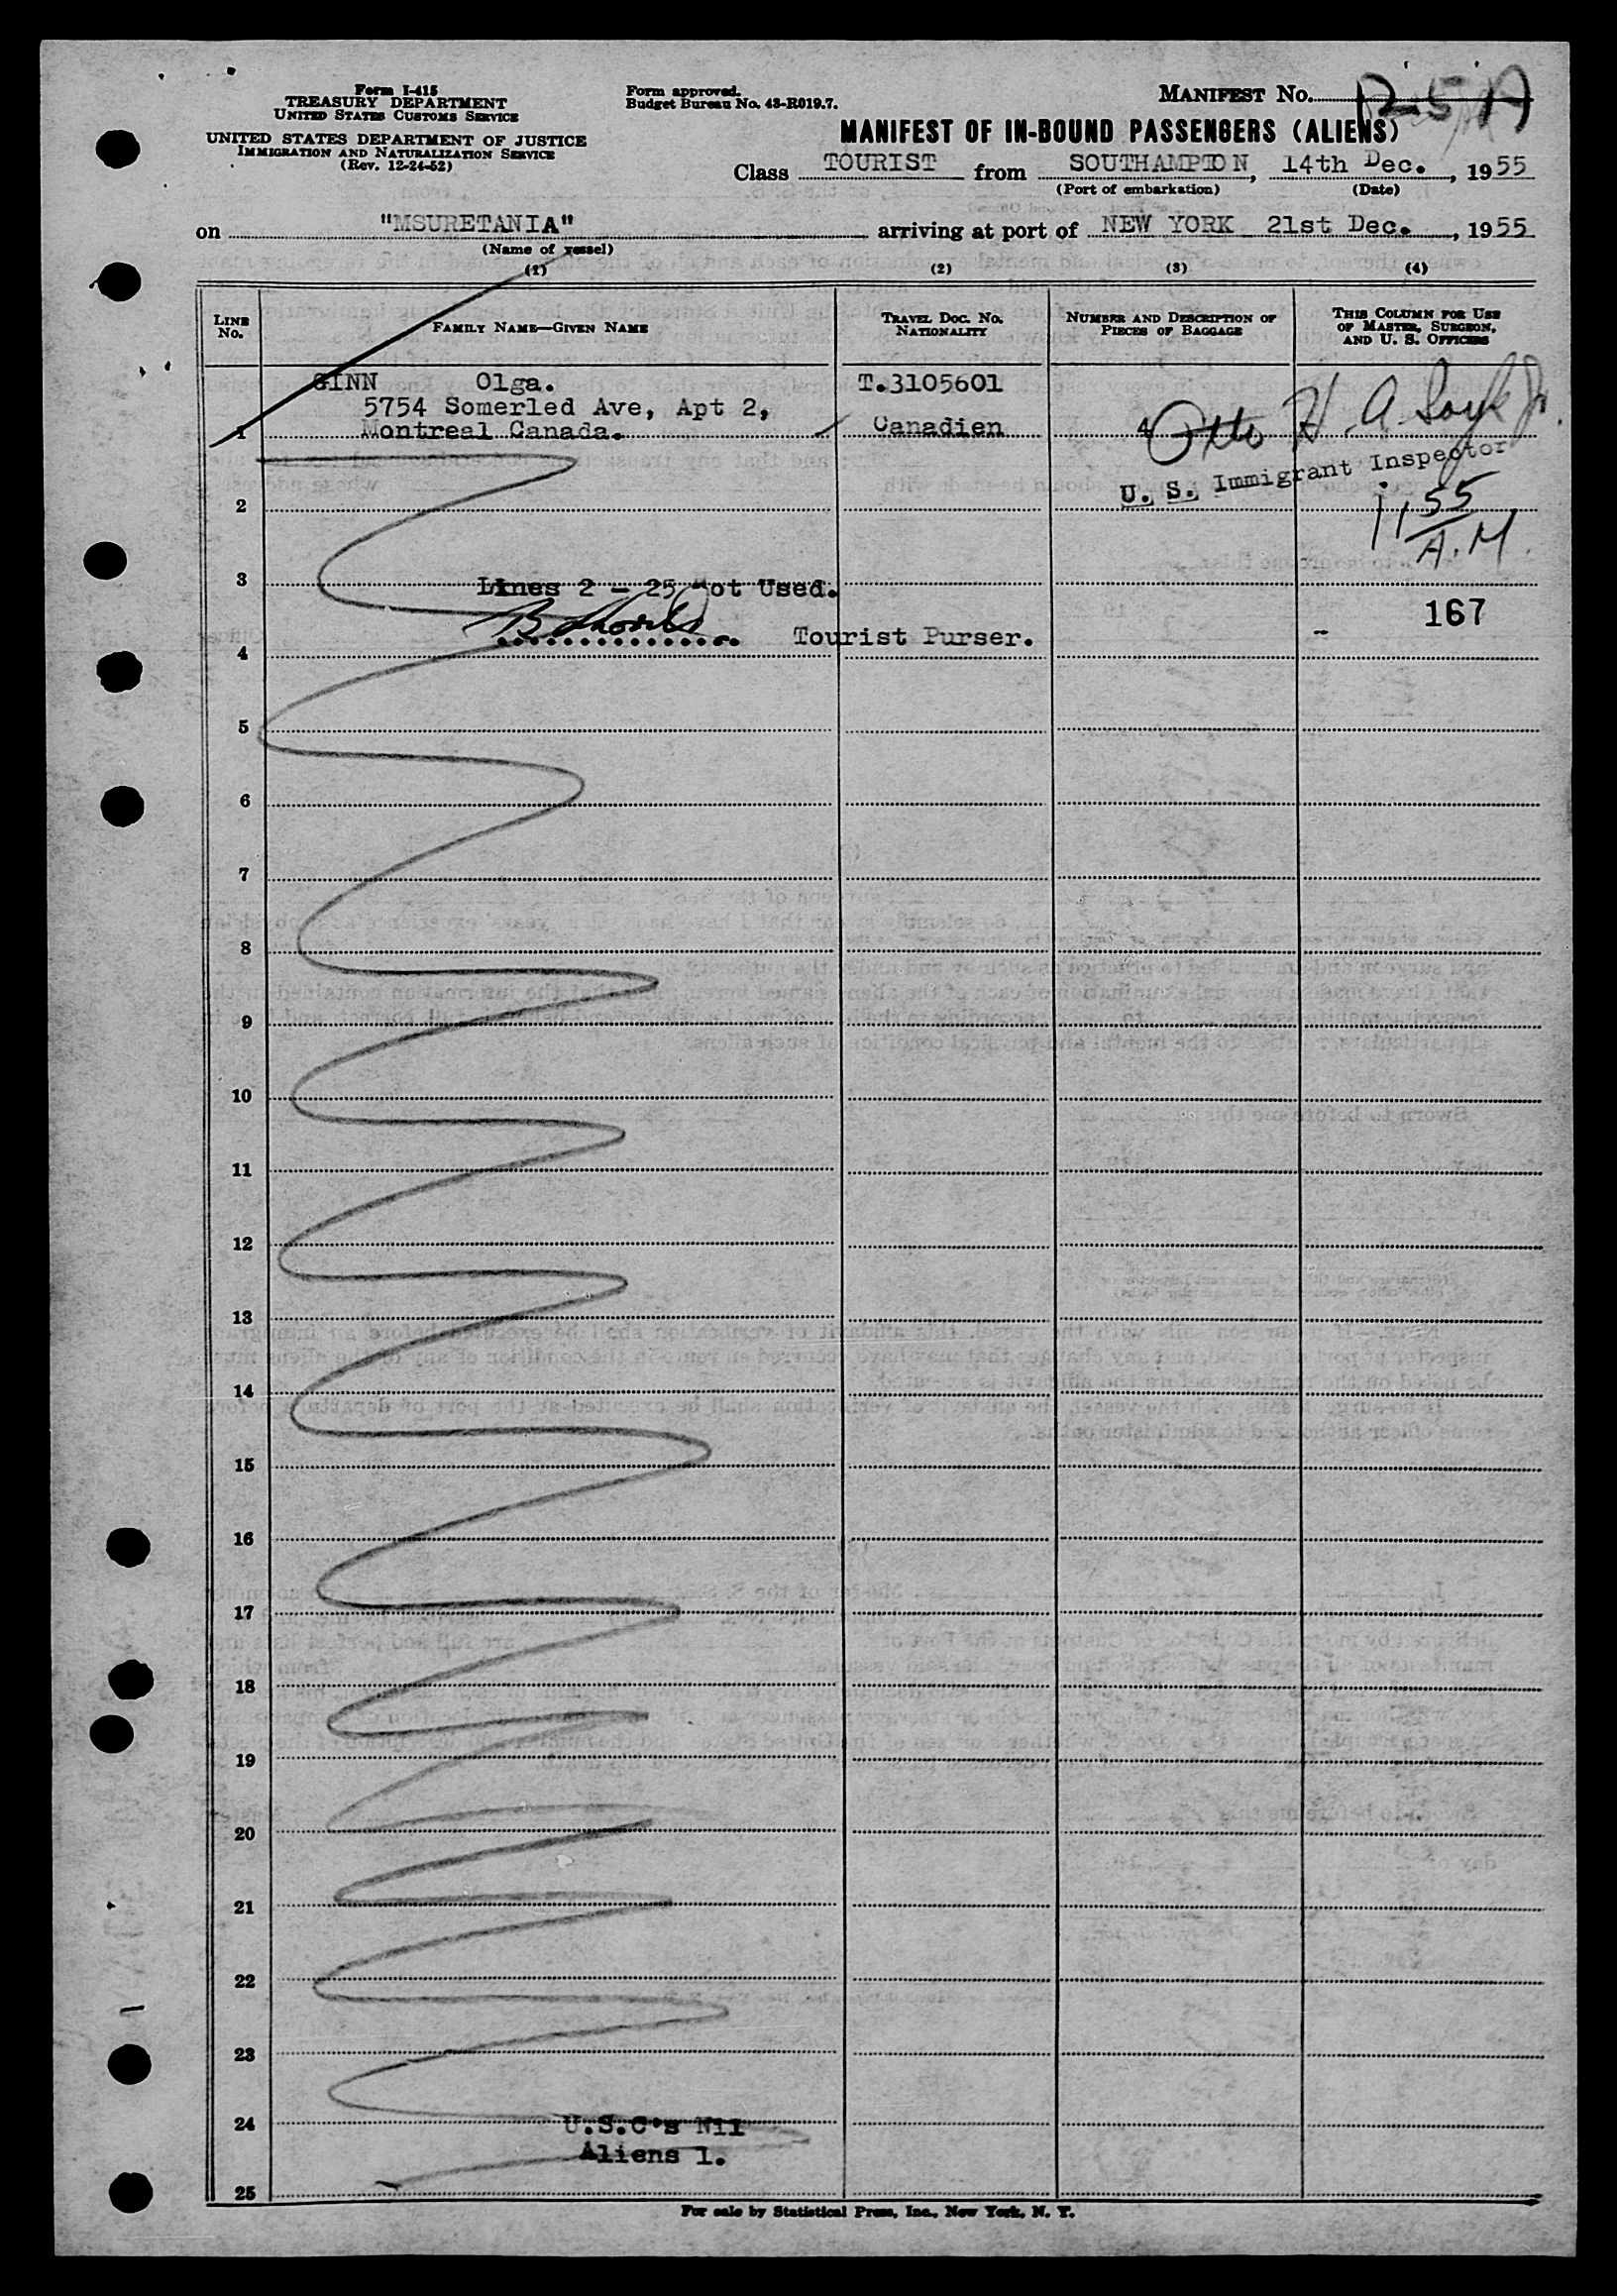 Form I-415
TREASURY DEPARTMENT
UNITED STATES CUSTOMS SERVICE
UNITED STATES DEPARTMENT OF JUSTICE
IMMIGRATION AND NATURALIZATION SERVICE
(Rev. 12-24-52)
Form approved.
Budget Bureau No. 43-R019.7.
MANIFEST No.
MANIFEST OF IN-BOUND PASSENGERS (ALIENS)
Class TOURIST from SOUTHAMPTON, 14th Dec., 1955
(Port of embarkation) (Date)
on "MSURETANIA" arriving at port of NEW YORK 21st Dec., 1955
(Name of vessel)
(1) (2) (3) (4)
LINE NO. FAMILY NAME—GIVEN NAME TRAVEL DOC. NO. NATIONALITY NUMBER AND DESCRIPTION OF PIECES OF BAGGAGE THIS COLUMN FOR USE OF MASTER, SURGEON, AND U. S. OFFICERS
GINN Olga. T.3105601
5754 Somerled Ave, Apt 2,
1 Montreal Canada. Canadien 4 Otto H. A.
U. S. Immigrant Inspector
2 11 55
A.M.
3 Lines 2 - 25 Not Used.
167
4 Tourist Purser. -
5
6
7
8
9
10
11
12
13
14
15
16
17
18
19
20
21
22
23
24 U.S.C's Nil
Aliens 1.
25
For sale by Statistical Press, Inc., New York, N. Y.